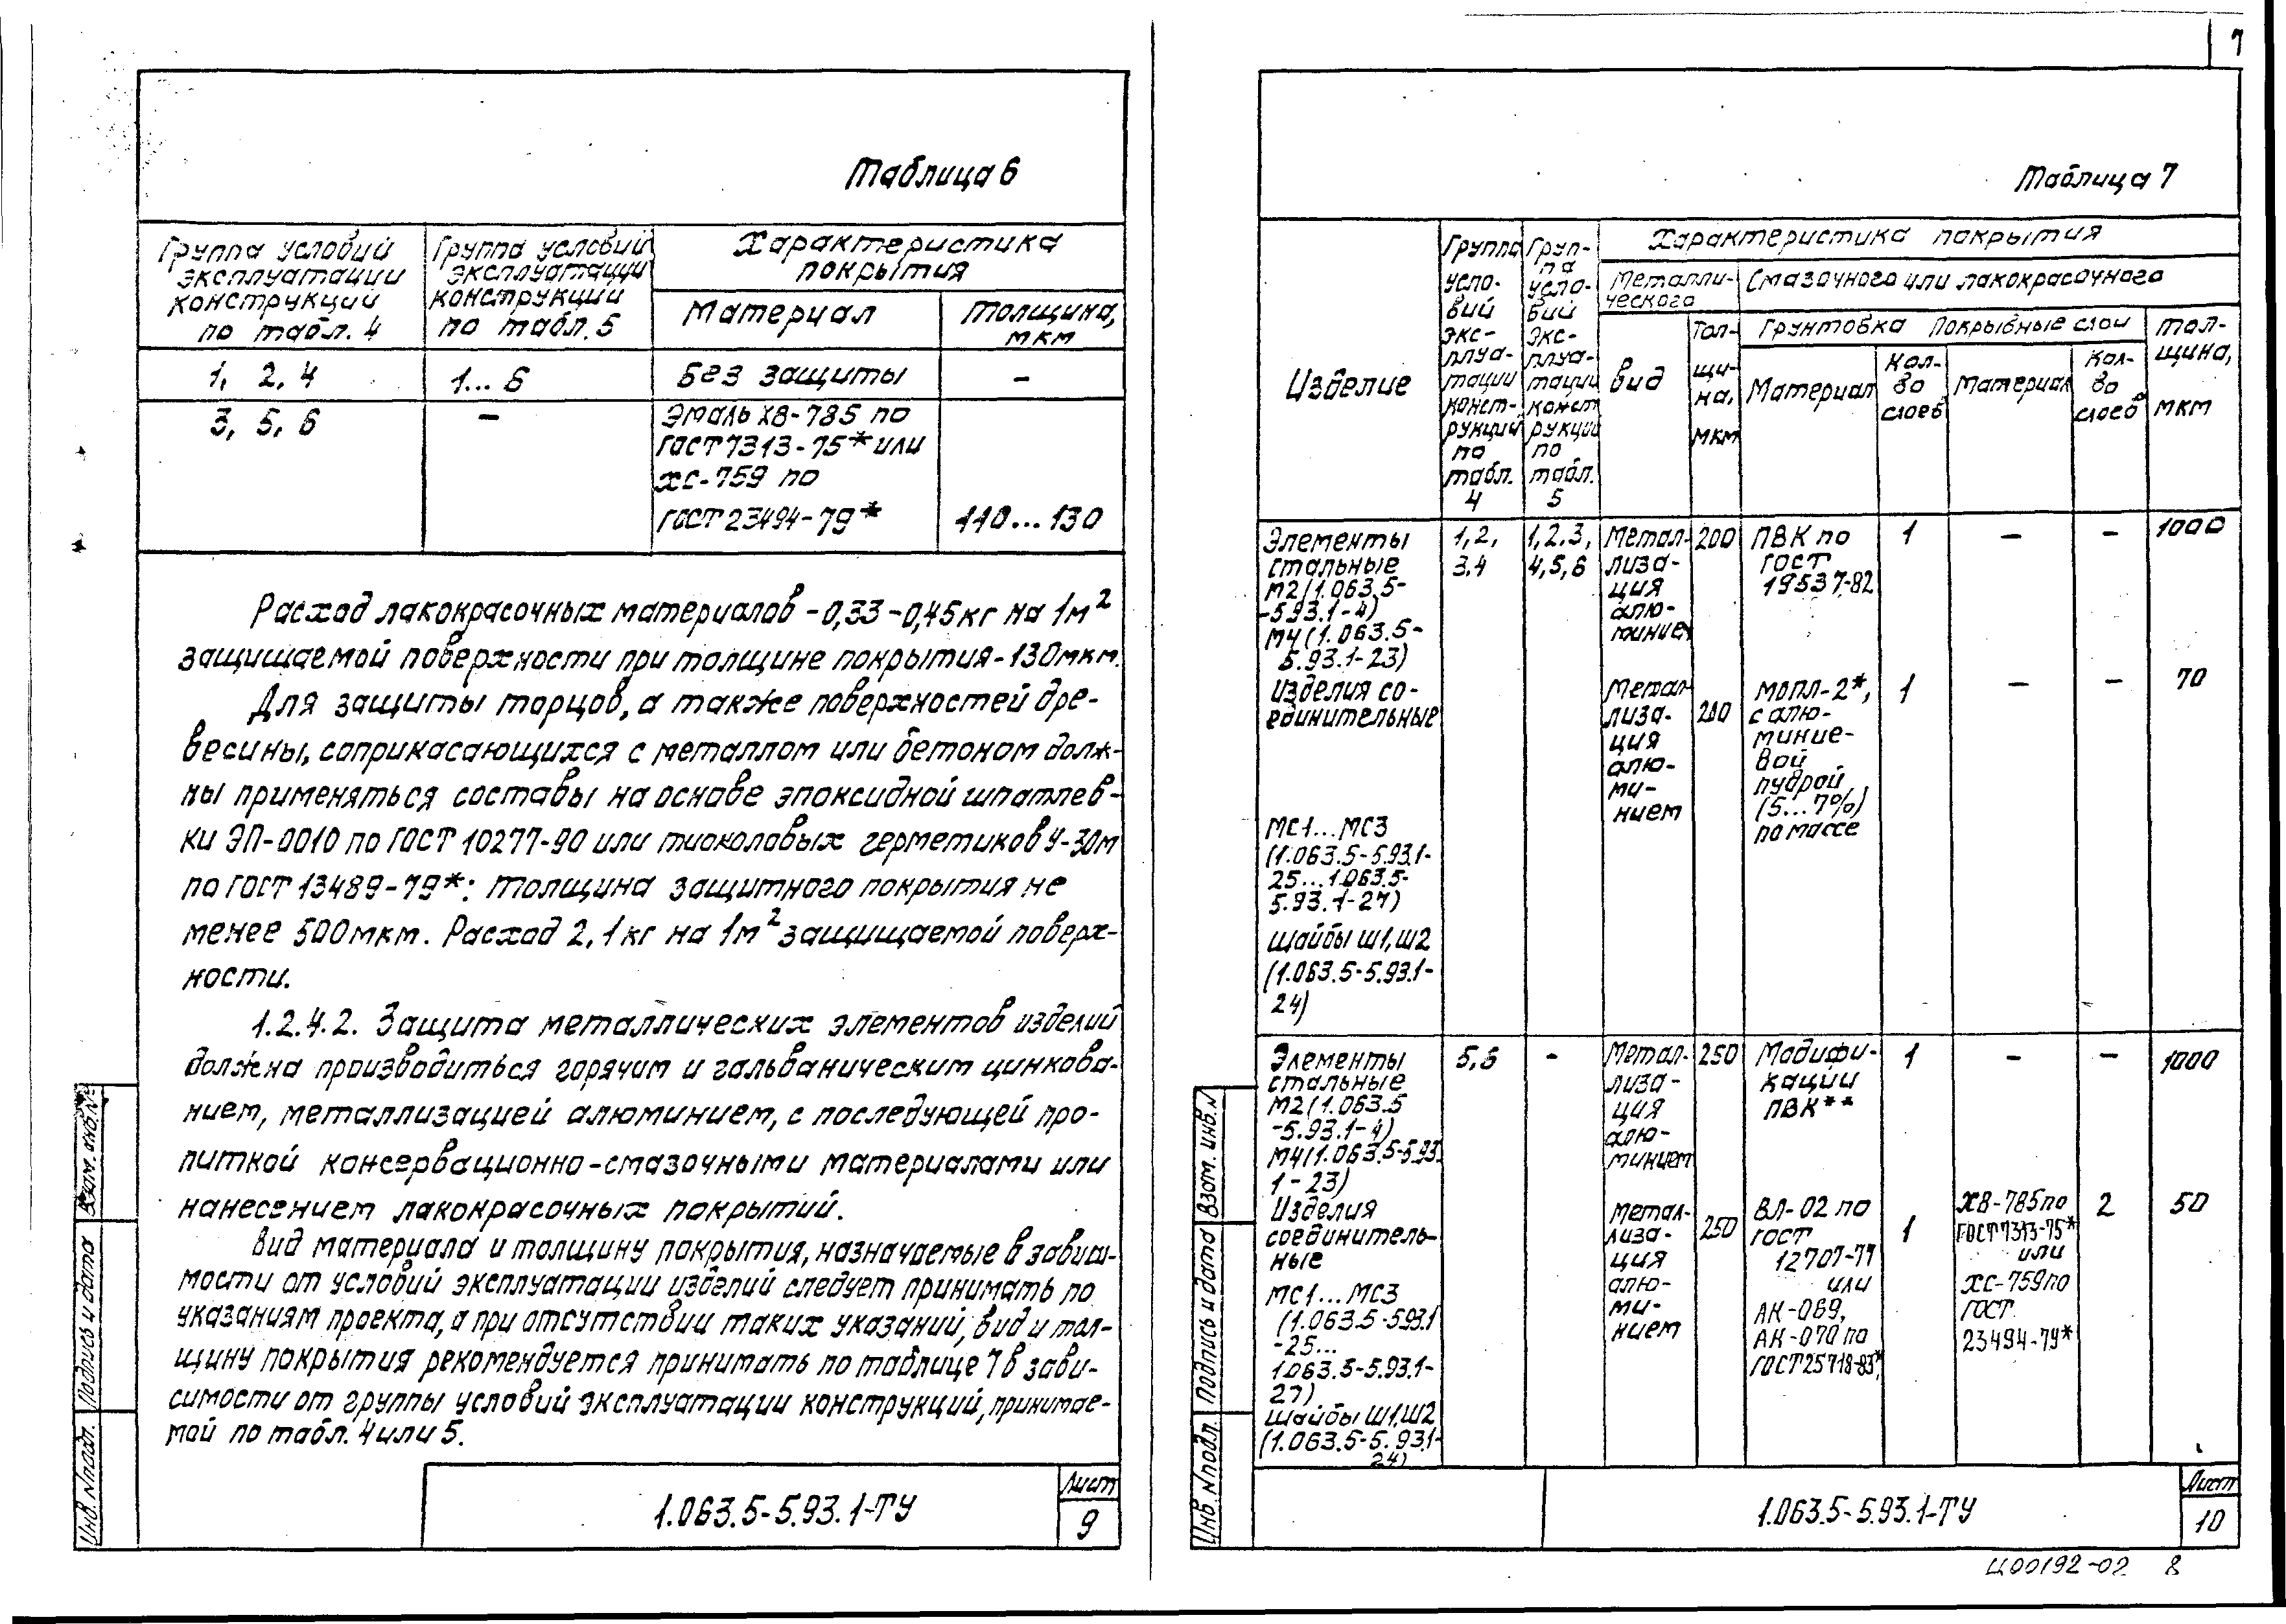 7
Таблица 6
Группа условий эксплуатации конструкций по табл. 4
Группа условий эксплуатации конструкций по табл. 5
Характеристика покрытия
Материал
Толщина, мкм
1, 2, 4
1...6
Без защиты
–
3, 5, 6
–
Эмаль ХВ-785 по
ГОСТ 7313-75* или
ХС-759 по
ГОСТ 23494-79*
110...130
Расход лакокрасочных материалов – 0,33 – 0,45 кг на 1м²
защищаемой поверхности при толщине покрытия – 130 мкм.
Для защиты торцов, а также поверхностей дре-
весины, соприкасающихся с металлом или бетоном долж-
ны применяться составы на основе эпоксидной шпатлев-
ки ЭП-0010 по ГОСТ 10277-90 или тиоколовых герметиков У-30м
по ГОСТ 13489-79*: толщина защитного покрытия не
менее 500 мкм. Расход 2,1 кг на 1м² защищаемой поверх-
ности.
1.2.4.2. Защита металлических элементов изделий
должна производиться горячим и гальваническим цинкова-
нием, металлизацией алюминием, с последующей про-
питкой консервационно-смазочными материалами или
нанесением лакокрасочных покрытий.
Вид материала и толщину покрытия, назначаемые в зависи-
мости от условий эксплуатации изделий следует принимать по
указаниям проекта, а при отсутствии таких указаний, вид и тол-
щину покрытия рекомендуется принимать по таблице 7 в зави-
симости от группы условий эксплуатации конструкций, принимае-
мой по табл. 4 или 5.
Взам. инв. №
Подпись и дата
Инв. № подл.
1.063.5-5.93.1-ТУ
Лист
9
Таблица 7
Изделие
Группа усло-вий экс-плуа-тации конст-рукций по табл. 4
Груп-па усло-вий экс-плуа-тации конст рукций по табл. 5
Характеристика покрытия
Металли-ческого
Смазочного или лакокрасочного
Вид
Тол-щи-на, мкм
Грунтовка
Покрывные слои
Тол-щина, мкм
Материал
Кол-во слоев
Материал
Кол-во слоев
Элементы
стальные
М2 (1.063.5-
-5.93.1-4)
М4 (1.063.5-
5.93.1-23)
1, 2,
3, 4
1, 2, 3,
4, 5, 6
Метал-
лиза-
ция
алю-
минием
200
ПВК по
ГОСТ
19537-82
1
–
–
1000
Изделия со-
единительные
МС1...МС3
(1.063.5-5.93.1-
25...1.063.5-
5.93.1-27)
Шайбы Ш1, Ш2
(1.063.5-5.93.1-
24)
Метал-
лиза-
ция
алю-
ми-
нием
200
МОПЛ-2*,
с алю-
миние-
вой
пудрой
(5...7%)
по массе
1
–
–
70
Элементы
стальные
М2 (1.063.5
-5.93.1-4)
М4 (1.063.5-5.93.
1-23)
5, 6
–
Метал-
лиза-
ция
алю-
минием
250
Модифи-
кации
ПВК**
1
–
–
1000
Изделия
соединитель-
ные
МС1...МС3
(1.063.5-5.93.1
-25...
1.063.5-5.93.1-
27)
Шайбы Ш1, Ш2
(1.063.5-5.93.1-
24)
Метал-
лиза-
ция
алю-
ми-
нием
250
ВЛ-02 по
ГОСТ
12707-77
или
АК-069,
АК-070 по
ГОСТ 25718-83*
1
ХВ-785 по
ГОСТ 7313-75*
или
ХС-759 по
ГОСТ
23494-79*
2
50
Взам. инв. №
Подпись и дата
Инв. № подл.
1.063.5-5.93.1-ТУ
Лист
10
Ц00192-02 8